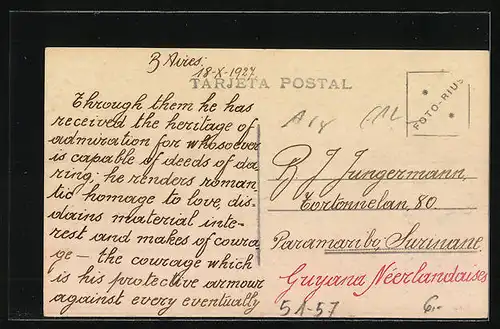 B Aires.
18-X-1927
TARJETA POSTAL
Through them he has
received the heritage of
admiration for whosoever
is capable of deeds of da-
ring; he renders roman-
tic homage to love, dis-
dains material inte-
rest and makes of coura
ge — the courage which
is his protective armour
against every eventually
FOTO-RIUS
J Jungermann,
Tortonnelan, 80.
Paramaribo, Suriname.
Guyana Néerlandaises
51-57
6.-